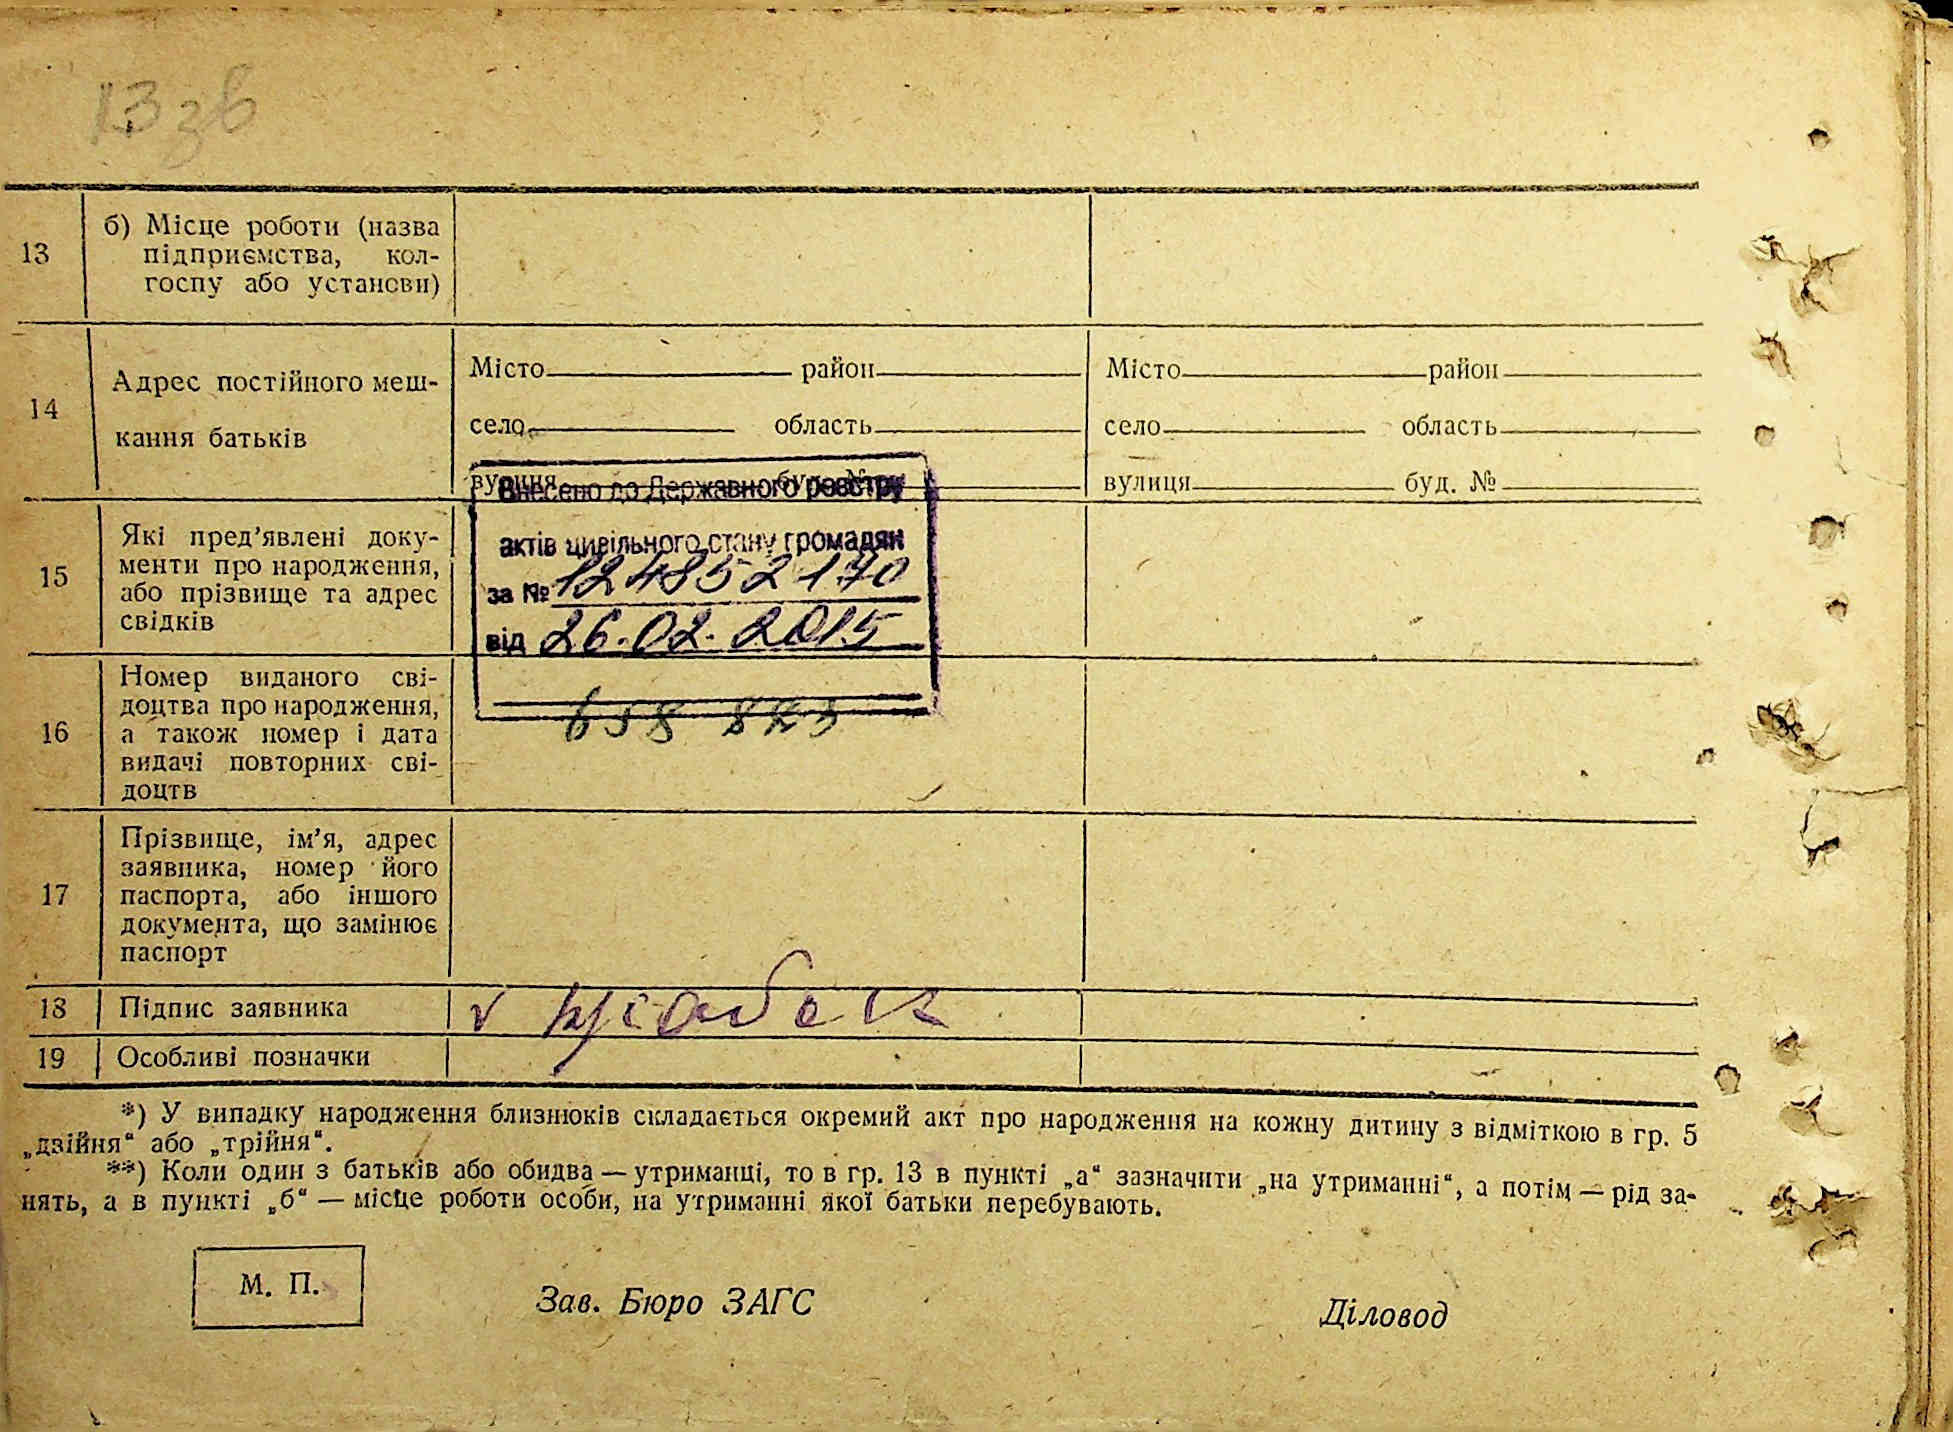 13 зв
13
б) Місце роботи (назва
підприємства, кол-
госпу або установи)
14
Адрес постійного меш-
кання батьків
Місто район
село область
вулиця буд. №
Місто район
село область
вулиця буд. №
Внесено до Державного реєстру
актів цивільного стану громадян
за № 124852170
від 26.02.2015
15
Які пред’явлені доку-
менти про народження,
або прізвище та адрес
свідків
16
Номер виданого сві-
доцтва про народження,
а також номер і дата
видачі повторних сві-
доцтв
658
17
Прізвище, ім’я, адрес
заявника, номер його
паспорта, або іншого
документа, що замінює
паспорт
18 Підпис заявника
19 Особливі позначки
*) У випадку народження близнюків складається окремий акт про народження на кожну дитину з відміткою в гр. 5
„двійня“ або „трійня“.
**) Коли один з батьків або обидва — утриманці, то в гр. 13 в пункті „а“ зазначити „на утриманні“, а потім — рід за-
нять, а в пункті „б“ — місце роботи особи, на утриманні якої батьки перебувають.
М. П.
Зав. Бюро ЗАГС
Діловод